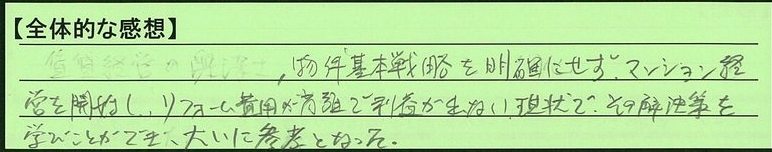 【全体的な感想】
、物件基本戦略を明確化せず、マンション経
営を開始し、リフォーム費用が高額で利益が出ない現状で、その解決策を
学ぶことができ、大いに参考となった。